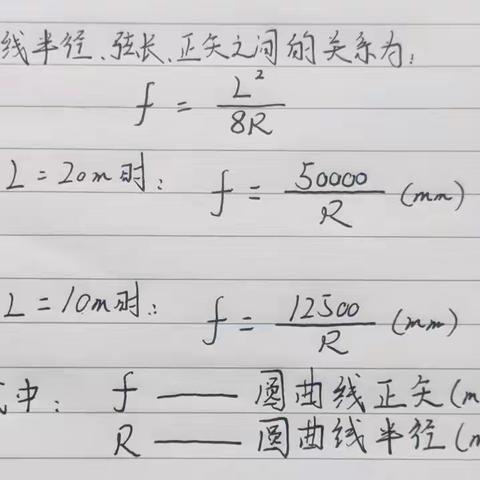 线半径、弦长、正矢之间的关系为:
f = L²/8R
L=20m时: f = 50000/R (mm)
L=10m时: f = 12500/R (mm)
中: f —— 圆曲线正矢(m
R —— 圆曲线半径(m